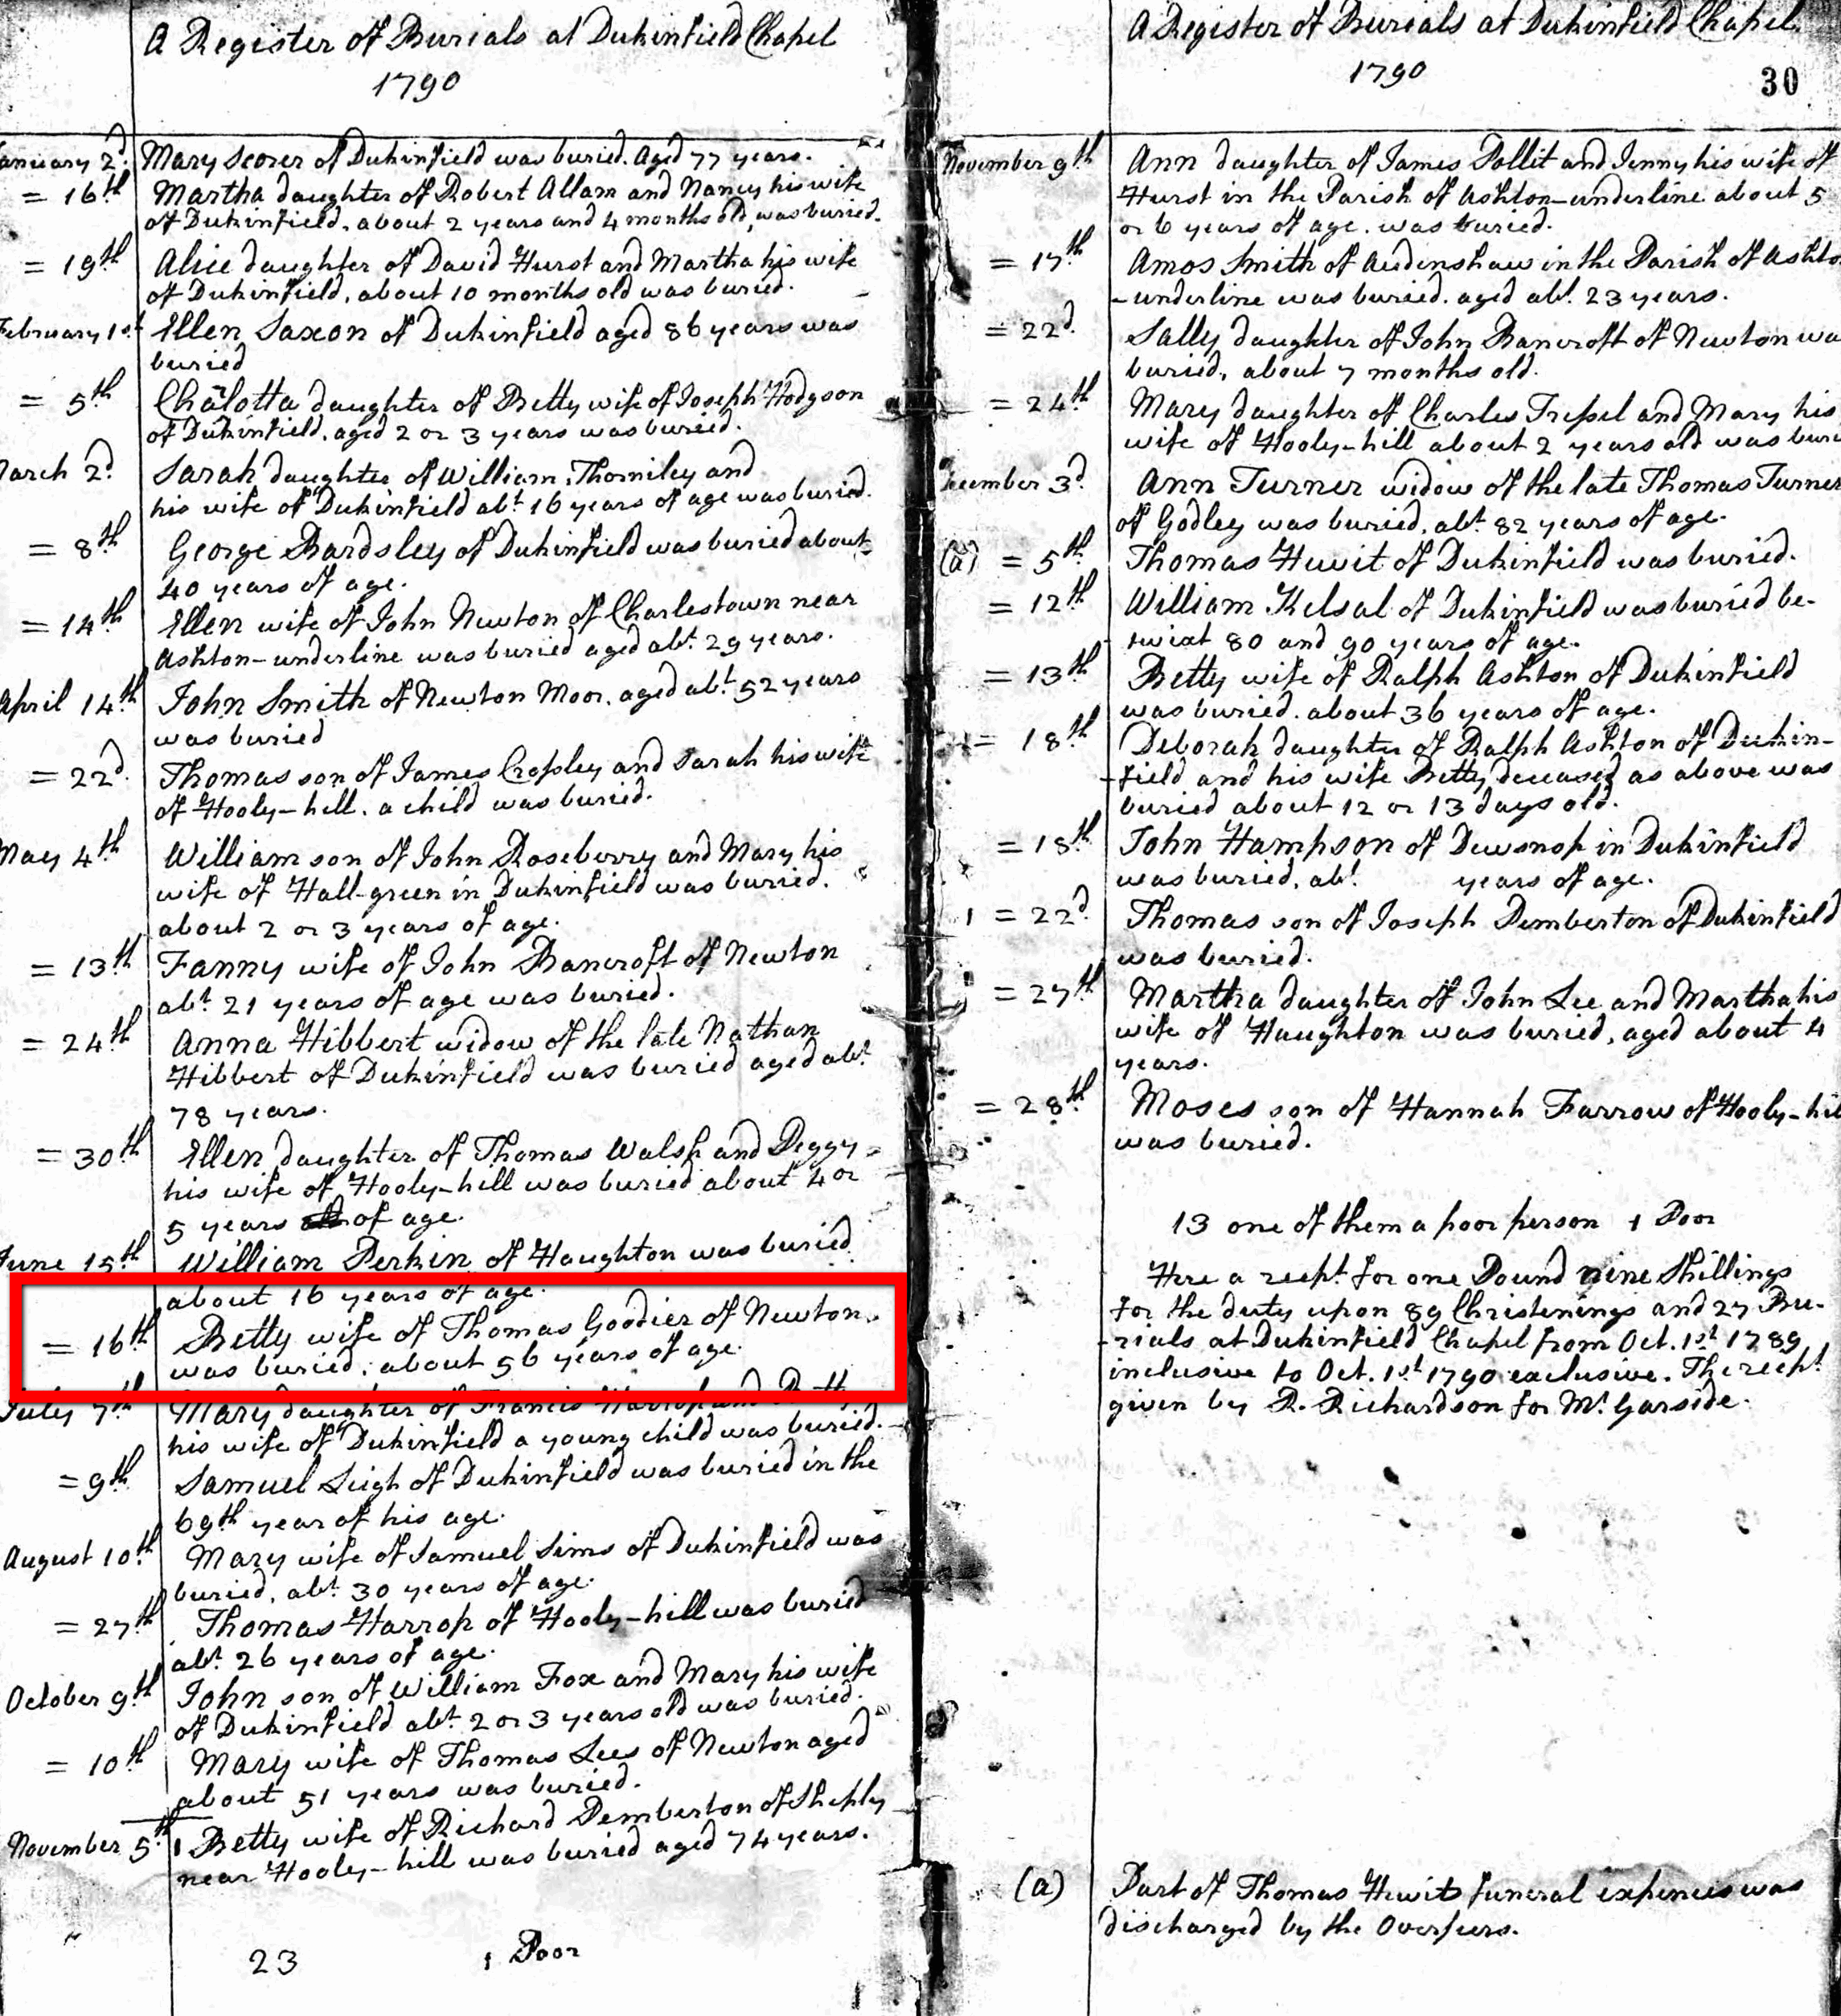 A Register of Burials at Dukinfield Chapel
1790
January 2d. Mary Scorer of Dukinfield was buried. Aged 77 years.
= 16th Martha daughter of Robert Allam and Nancy his wife
of Dukinfield, about 2 years and 4 months old, was buried.
= 19th Alice daughter of David Hurst and Martha his wife
of Dukinfield, about 10 months old was buried.
February 1st Ellen Saxon of Dukinfield aged 86 years was
buried
= 5th Chalotta daughter of Betty wife of Joseph Hodgson
of Dukinfield, aged 2 or 3 years was buried.
March 2d. Sarah daughter of William Thorniley and
his wife of Dukinfield abt. 16 years of age was buried.
= 8th George Bardsley of Dukinfield was buried about
40 years of age.
= 14th Ellen wife of John Newton of Charlestown near
Ashton-underline was buried aged abt. 29 years.
April 14th John Smith of Newton Moor, aged abt. 52 years
was buried
= 22d. Thomas son of James Cropsley and Sarah his wife
of Hooly-hill, a child was buried.
May 4th William son of John Roseberry and Mary his
wife of Hall-green in Dukinfield was buried,
about 2 or 3 years of age.
= 13th Fanny wife of John Bancroft of Newton
abt. 21 years of age was buried.
= 24th Anna Hibbert widow of the late Nathan
Hibbert of Dukinfield was buried aged abt.
78 years.
= 30th Ellen daughter of Thomas Walsh and Peggy
his wife of Hooly-hill was buried about 4 or
5 years of age.
June 15th William Perkin of Haughton was buried
about 16 years of age.
= 16th Betty wife of Thomas Goodier of Newton
was buried, about 56 years of age.
July 7th Mary daughter of Francis Harrop and Betty
his wife of Dukinfield a young child was buried.
= 9th. Samuel Leigh of Dukinfield was buried in the
69th year of his age.
August 10th Mary wife of Samuel Sims of Dukinfield was
buried, abt. 30 years of age.
= 27th Thomas Harrop of Hooly-hill was buried
abt. 26 years of age.
October 9th John son of William Fox and Mary his wife
of Dukinfield abt. 2 or 3 years old was buried.
= 10th Mary wife of Thomas Lees of Newton aged
about 51 years was buried.
November 5th 1 Betty wife of Richard Pemberton of Sheply
near Hooley-hill was buried aged 74 years.
23 1 Poor
A Register of Burials at Dukinfield Chapel.
1790
30
November 9th Ann daughter of James Pollit and Jenny his wife of
Hurst in the Parish of Ashton-underline about 5
or 6 years of age. was buried.
= 17th Amos Smith of Audenshaw in the Parish of Ashto
-underline was buried. aged abt. 23 years.
= 22d. Sally daughter of John Bancroft of Newton wa
buried, about 7 months old.
= 24th Mary daughter of Charles Trepsel and Mary his
wife of Hooly-hill about 2 years old was buri
December 3d. Ann Turner widow of the late Thomas Turner
of Godley was buried, abt. 82 years of age.
(a) = 5th Thomas Hewit of Dukinfield was buried.
= 12th William Kelsal of Dukinfield was buried be-
twixt 80 and 90 years of age.
= 13th Betty wife of Ralph Ashton of Dukinfield
was buried. about 36 years of age.
= 18th Deborah daughter of Ralph Ashton of Dukin-
-field and his wife Betty deceased as above was
buried about 12 or 13 days old.
= 18th John Hampson of Dewsnop in Dukinfield
was buried, abt. years of age.
1 = 22d. Thomas son of Joseph Pemberton of Dukinfield
was buried.
= 27th Martha daughter of John Lee and Martha his
wife of Haughton was buried, aged about 4
years.
= 28th Moses son of Hannah Farrow of Hooly-hil
was buried.
13 one of them a poor person 1 Poor
Here a recpt. for one Pound nine Shillings
for the duty upon 89 Christenings and 27 Bu-
-rials at Dukinfield Chapel from Oct. 1st 1789
inclusive to Oct. 1st 1790 exclusive. The recpt.
given by R. Richardson for Mr. Garside.
(a) Part of Thomas Hewits funeral expences was
discharged by the Overseers.